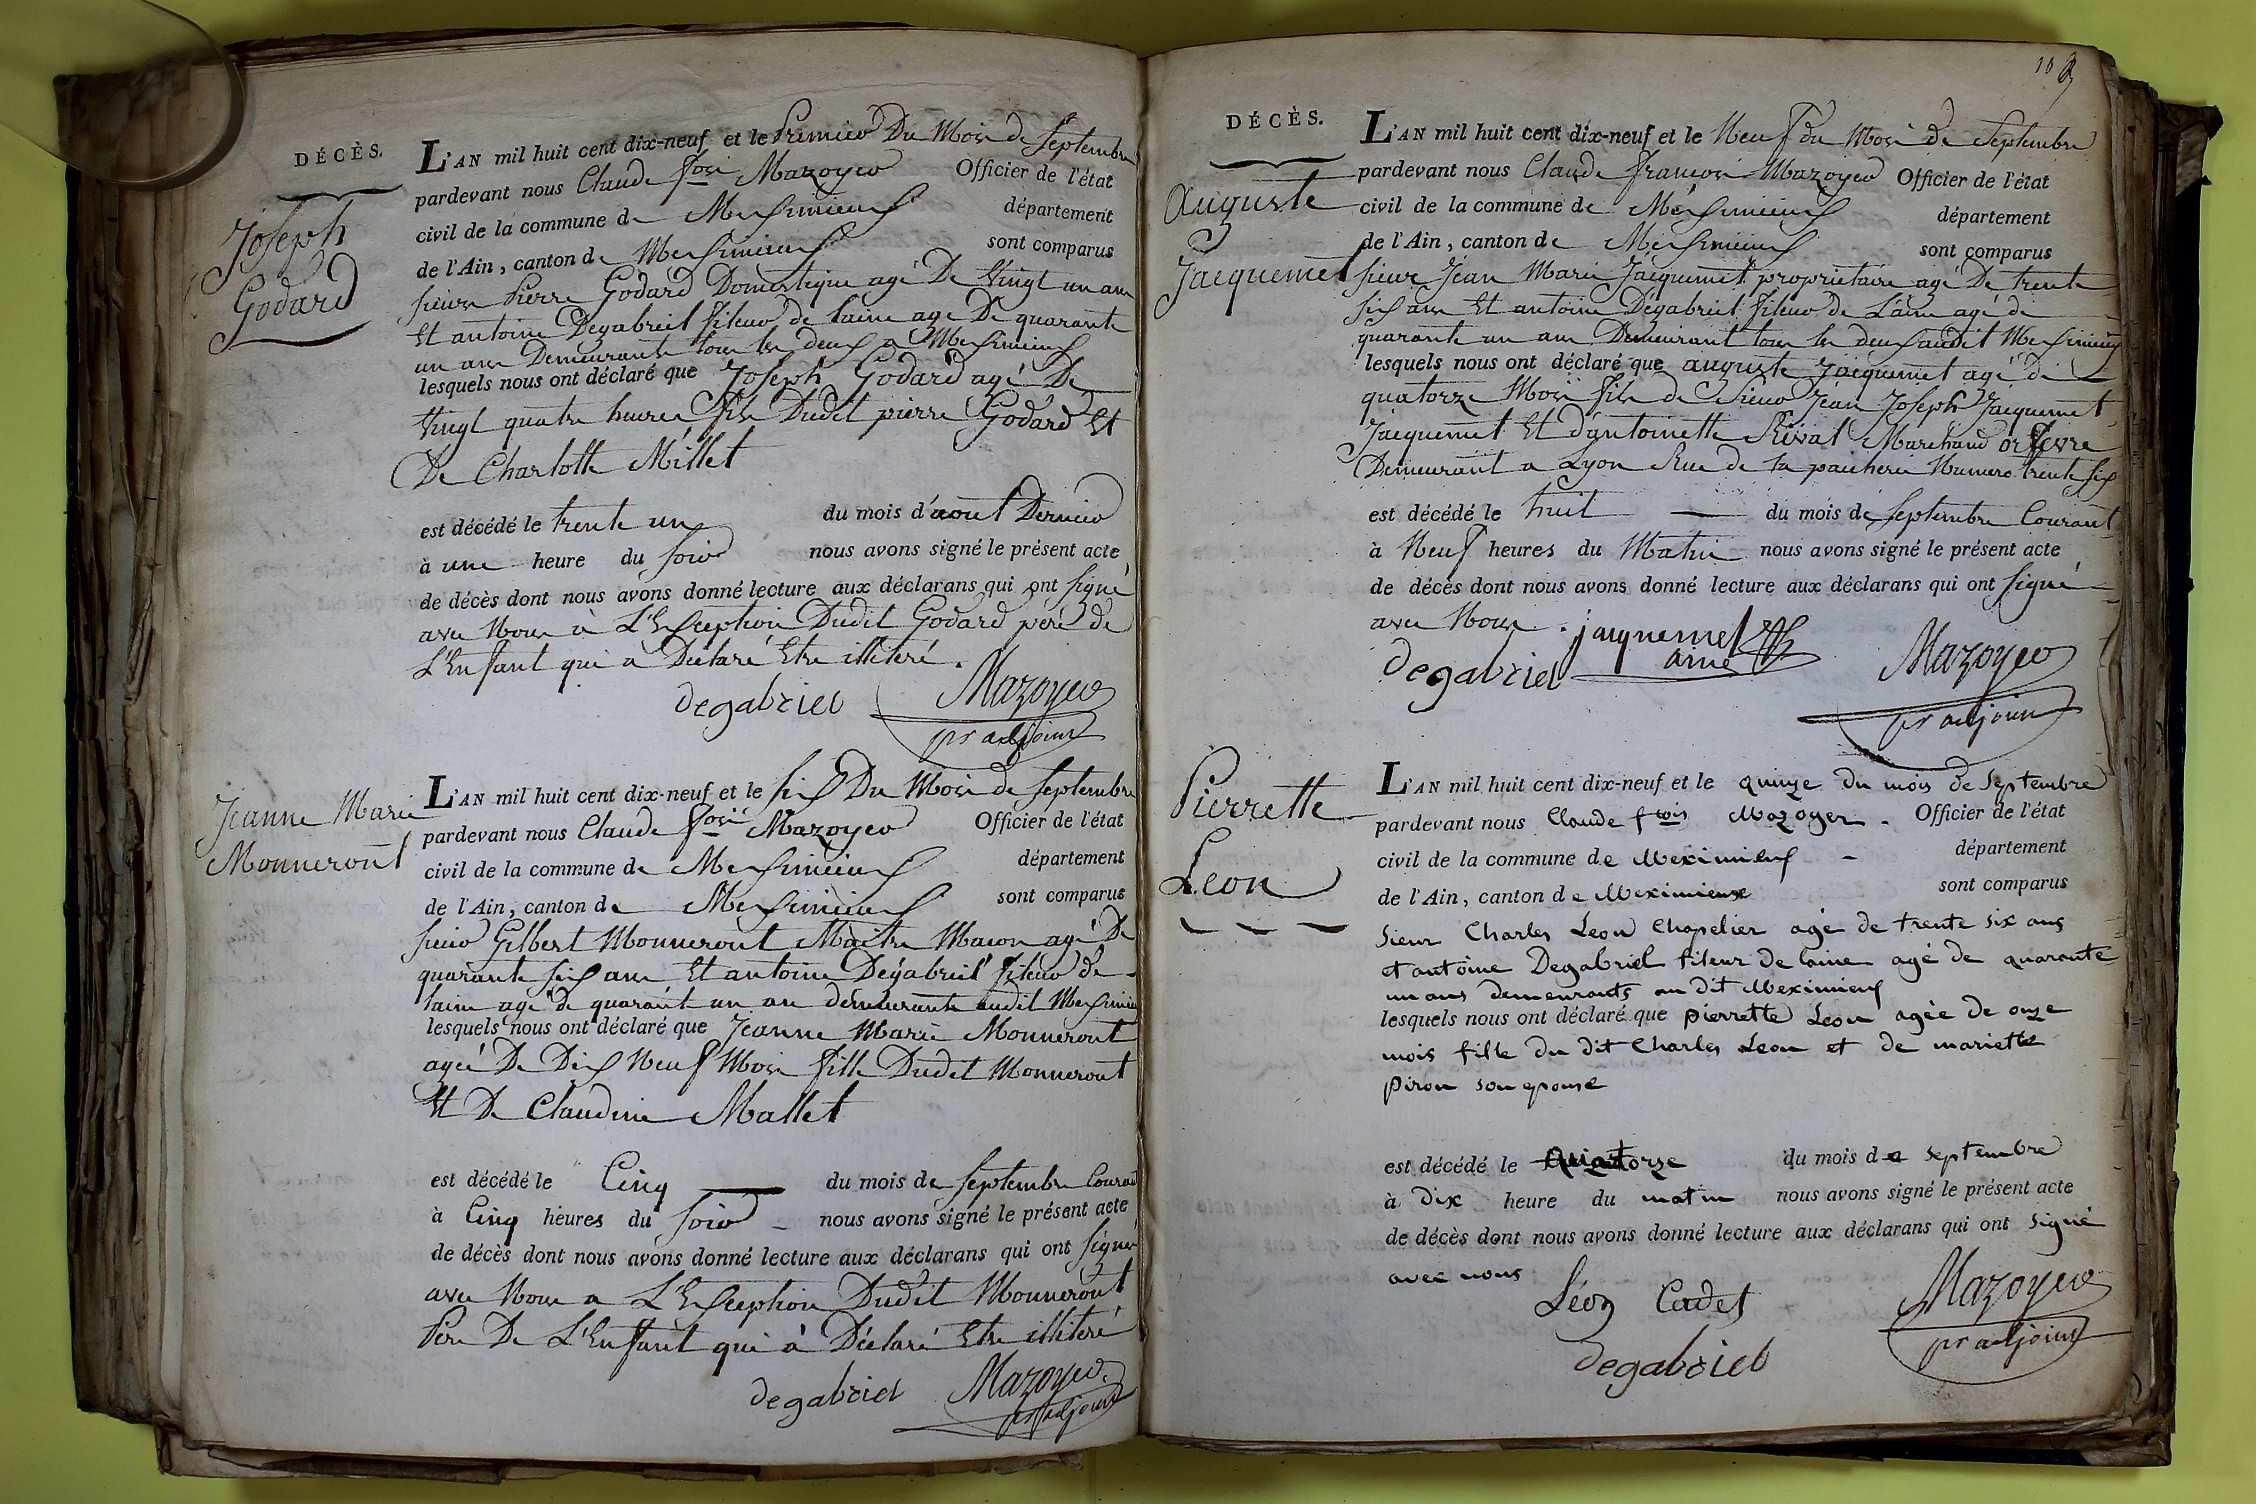 DÉCÈS.
Joseph
Godard
L'AN mil huit cent dix-neuf et le Premier Du Mois de Septembre
pardevant nous Claude fois Mazoyer Officier de l'état
civil de la commune de Meximieux département
de l'Ain, canton de Meximieux sont comparus
sieurs Pierre Godard Domestique agé De Vingt un ans
Et antoine Degabriel fileur de laine agé De quarante
un ans Demeurants tous les deux a Meximieux
lesquels nous ont déclaré que Joseph Godard agé De
Vingt quatre heures fils Dudit pierre Godard Et
De Charlotte Millet
est décédé le trente un du mois d'aout Dernier
à une heure du soir nous avons signé le présent acte
de décès dont nous avons donné lecture aux déclarans qui ont signé
avec Nous à L'Exception Dudit Godard père de
L'Enfant qui à Déclaré Etre illiteré.
degabriel Mazoyer
pr adjoint
Jeanne Marie
Monneront
L'AN mil huit cent dix-neuf et le six Du Mois de Septembre
pardevant nous Claude fois Mazoyer Officier de l'état
civil de la commune de Meximieux département
de l'Ain, canton de Meximieux sont comparus
sieur Gilbert Monneront Maître Macon agé De
quarante six ans Et antoine Degabriel fileur de
laine agé de quarante un an demeurants audit Meximieux
lesquels nous ont déclaré que Jeanne Marie Monneront
agée De Dix Neuf Mois fille Dudit Monneront
Et De Claudine Mallet
est décédé le Cinq du mois de Septembre Courant
à Cinq heures du soir nous avons signé le présent acte
de décès dont nous avons donné lecture aux déclarans qui ont signé
avec Nous a L'Exception Dudit Monneront
Pere De L'Enfant qui à Déclaré Etre illiteré
degabriel Mazoyer
pr adjoint
DÉCÈS.
Auguste
Jacquemet
L'AN mil huit cent dix-neuf et le Neuf du Mois de Septembre
pardevant nous Claude francois Mazoyer Officier de l'état
civil de la commune de Meximieux département
de l'Ain, canton de Meximieux sont comparus
sieurs Jean Marie Jacquemet propriétaire agé De trente
six ans Et antoine Dégabriel fileur de Laine agé de
quarante un ans Demeurant tous les deux audit Meximieux
lesquels nous ont déclaré que auguste Jacquemet agé de
quatorze Mois fils de Sieur Jean Joseph Jacquemet
Jacquemet Et d'antoinette Rivat Marchand orfevre
Demeurant a Lyon Rue de la Numero trente six
est décédé le huit du mois de Septembre Courant
à Neuf heures du Matin nous avons signé le présent acte
de décès dont nous avons donné lecture aux déclarans qui ont signé
avec Nous. jacquemet
ainé
degabriel Mazoyer
pr adjoint
Pierrette
Leon
L'AN mil huit cent dix-neuf et le quinze du mois de Septembre
pardevant nous Claude frois Mazoyer. Officier de l'état
civil de la commune de Meximieux département
de l'Ain, canton de Meximieux sont comparus
Sieur Charles Leon Chapelier agé de trente six ans
et antoine Degabriel fileur de laine agé de quarante
un ans demeurants au dit Meximieux
lesquels nous ont déclaré que pierrette Leon agée de onze
mois fille du dit Charles Leon et de mariette
piron son epouse
est décédé le Quatorze du mois de septembre
à dix heure du matin nous avons signé le présent acte
de décès dont nous avons donné lecture aux déclarans qui ont signé
avec nous
Léon Cadet Mazoyer
degabriel pr adjoint